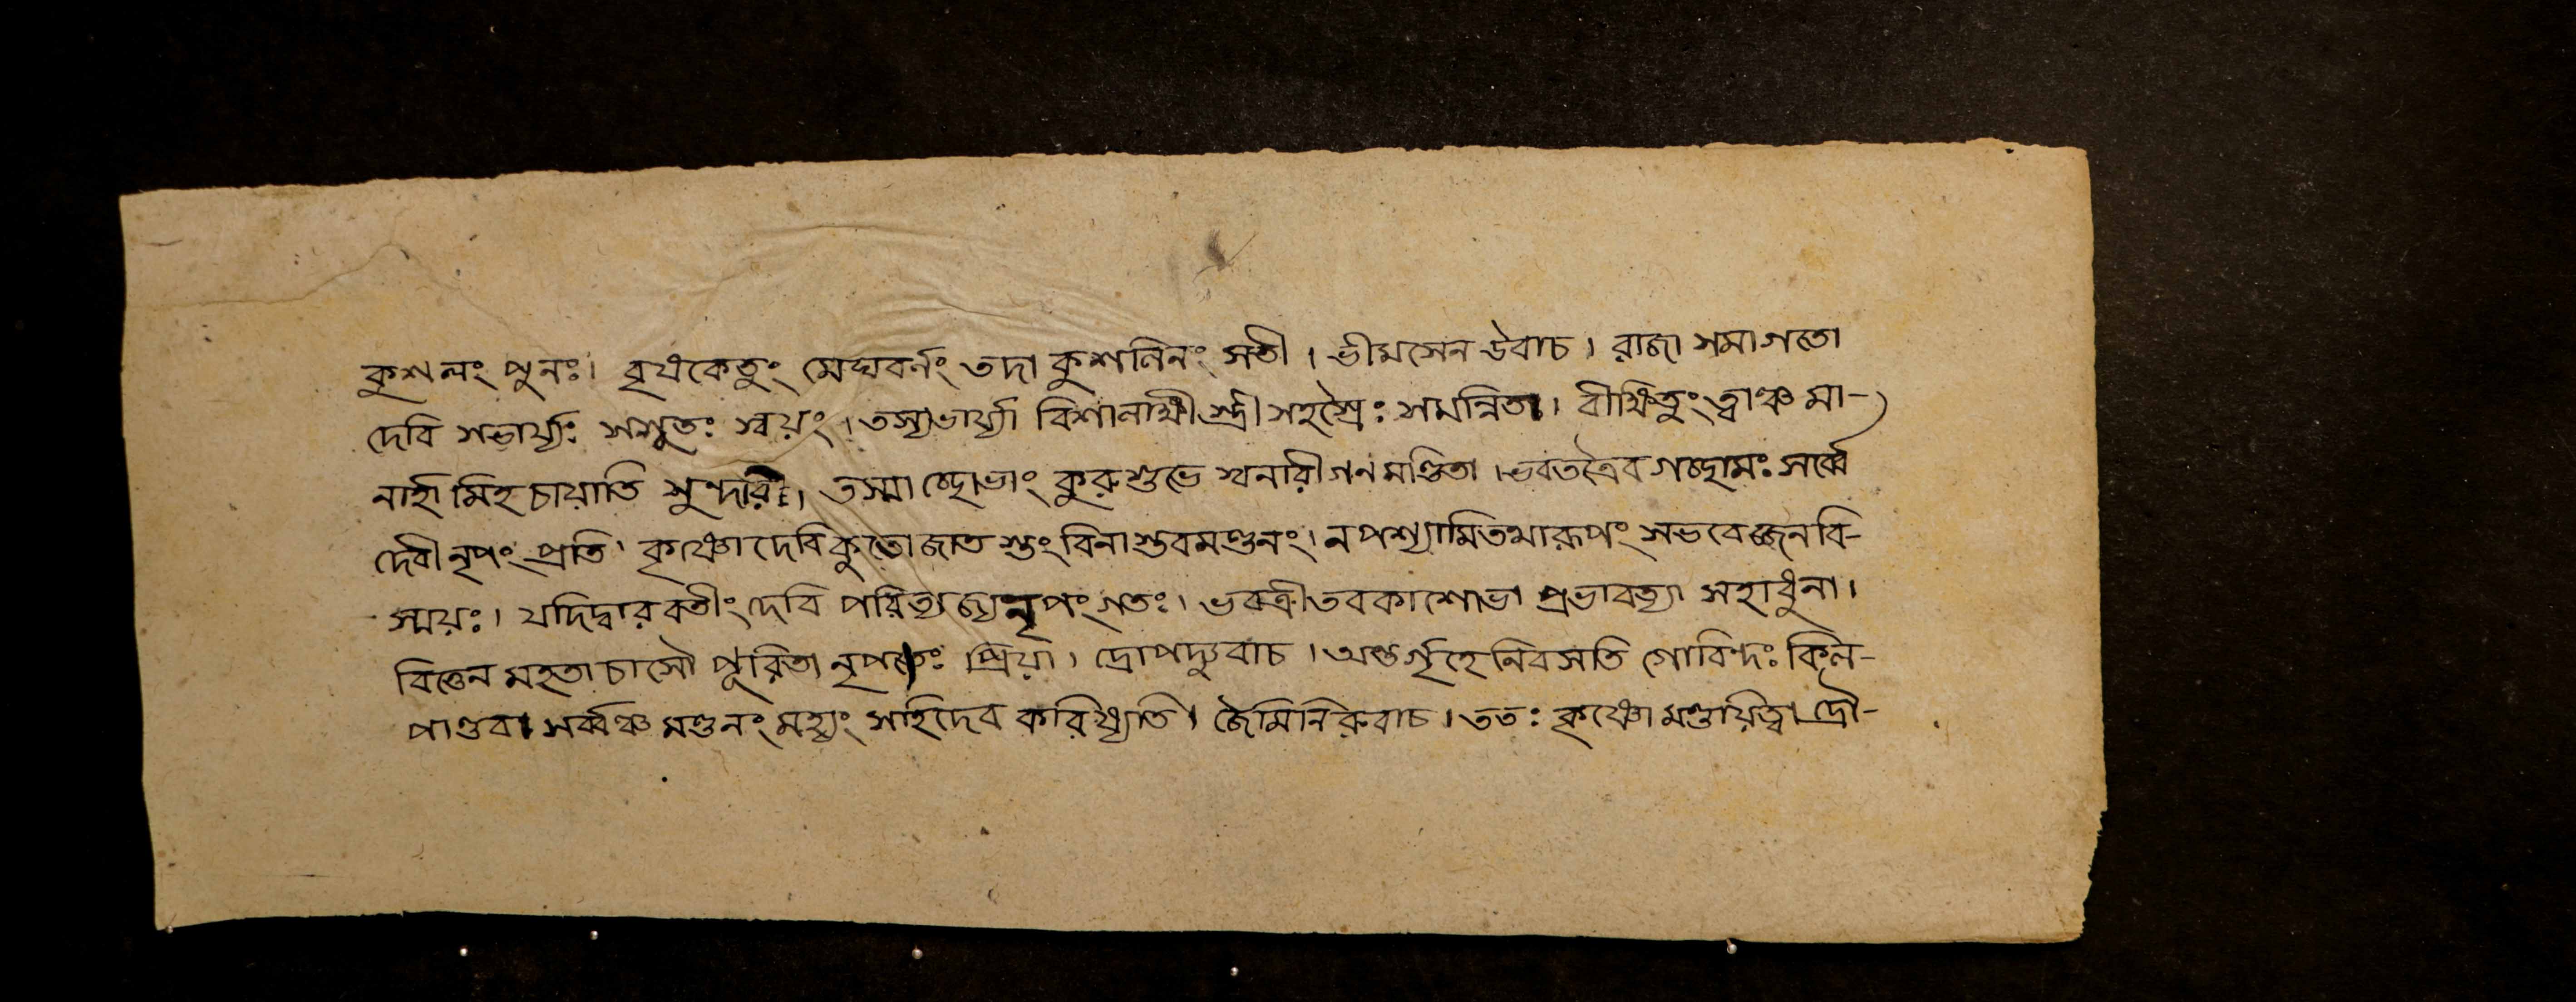 কুশলং পুনঃ। বৃষকেতুং মেঘবর্নং তদা কুশলিনং সতী। ভীমসেন উবাচ। রাজা সমাগতো
দেবি সভার্য্যঃ সসুতঃ স্বয়ং। তস্যভার্য্যা বিশালাক্ষী স্ত্রীসহস্রৈঃ সমন্বিতা। বীক্ষিতুং ত্বাঞ্চ মা-
নার্হামিহ চায়াতি সুন্দরী। তস্মাচ্ছোভাং কুরু শুভে স্বনারীগনমণ্ডিতা। ভব তত্রৈব গচ্ছামঃ সর্ব্বে
দেবী নৃপং প্রতি। কৃষ্ণো দেবি কুতো জাত স্তং বিনা স্তব মণ্ডনং। ন পশ্যামি তথারূপং স ভবেজ্জন বি-
স্ময়ঃ। যদি দ্বারবতীং দেবি পরিত্যজ্য নৃপং গতঃ। ভবত্রী তব কা শোভা প্রভাবত্যা সহাধুনা।
বিত্তেন মহতা চাসৌ পূরিতা নৃপতেঃ প্রিয়া। দ্রোপদ্যুবাচ। অন্তর্গৃহে নিবসতি গোবিন্দঃ কিল-
পাণ্ডবা সর্ব্বঞ্চ মণ্ডনং মহ্যং স হি দেব করিষ্যতি। জৈমিনিরুবাচ। ততঃ কৃষ্ণো মণ্ডয়িত্বা দ্রৌ-